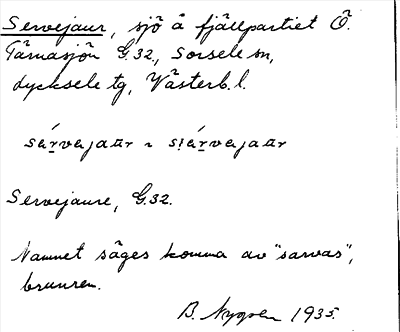 Servejaur, sjö å fjällpartiet Ö.
Tärnasjön G.32, Sorsele sn,
Lycksele tg, Västerb. l.
sérvejaur ~ siérvejaur
Servejaure, G.32.
Namnet säges komma av "sarvas",
brunren.
B. Nygren 1935.